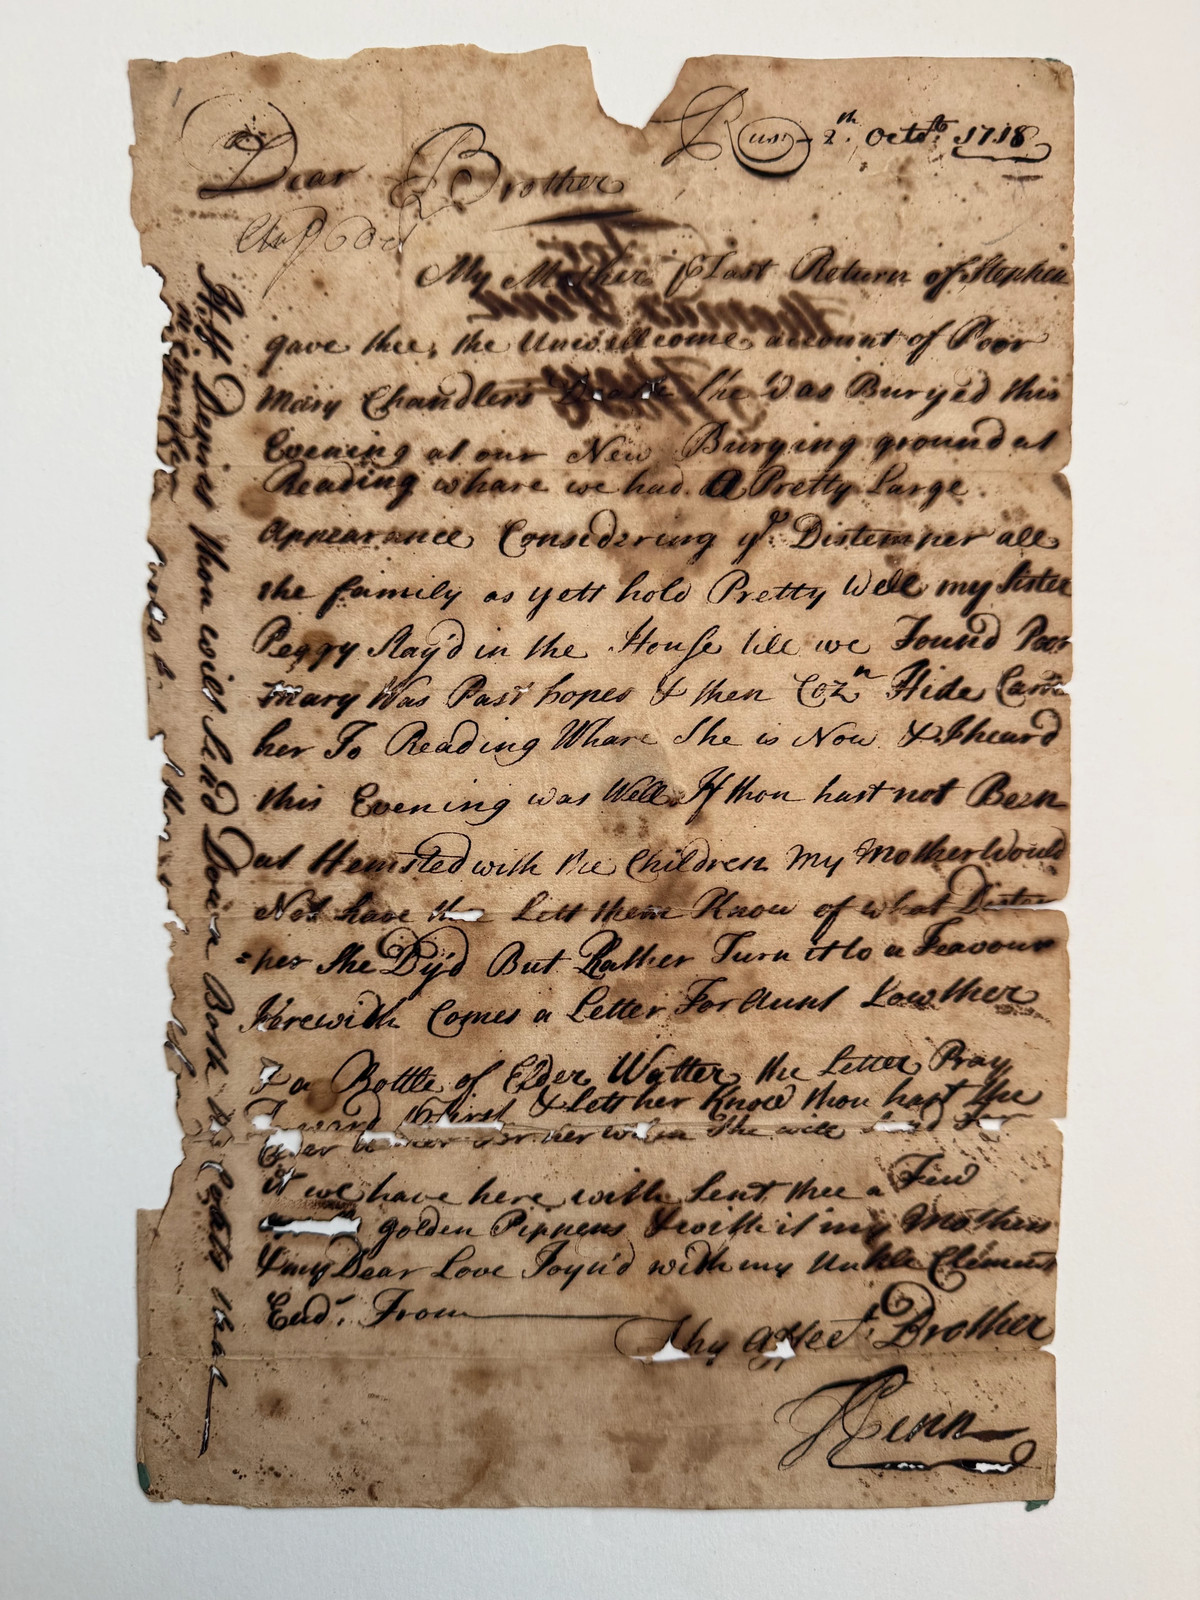 Rusr - 2th. Octobr: 1718
Dear Brother
My Mother p Last Return of Stephen
gave thee, the Unwellcome account of Poor
Mary Chandlers Death She Was Buryed this
Evening at our New Burying ground at
Reading whare we had A Pretty Large
Appearance Considering ye Distemper all
the family as yett hold Pretty Well my Sister
Peggy Stay'd in the House till we Found Poor
Mary Was Past hopes & then Cozn Hide Carrd
her To Reading Whare She is Now & I heard
this Evening was Well If thou hast not Been
at Hemsted with the Children My Mother Would
Not have thee Lett them Know of what Distem
=per She Dy'd But Rather Turn it to a Feavour
Herewith Comes a Letter For Aunt Lowther
& a Bottle of Elder Watter the Letter Pray
Forward First & Lett her Know thou hast the
Elder Watter for her when She will Send For
it we have here with Sent thee a Few
golden Pippens & with it my Mothers
& my Dear Love Joyn'd with my Unkle Clements
End. From
Thy affect: Brother
JPenn
P.S. Desires thou will Send Down Both the Coats that
For
Thomas Penn
These